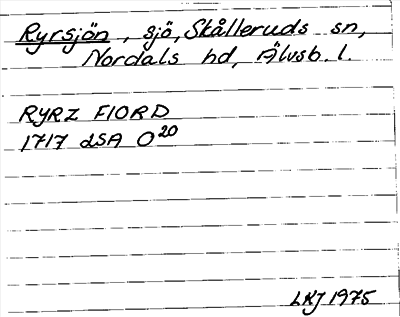 Ryrsjön, sjö, Skålleruds sn,
Nordals hd, Älvsb. l.
RYRZ FIORD
1717 LSA O 20
LKJ 1975